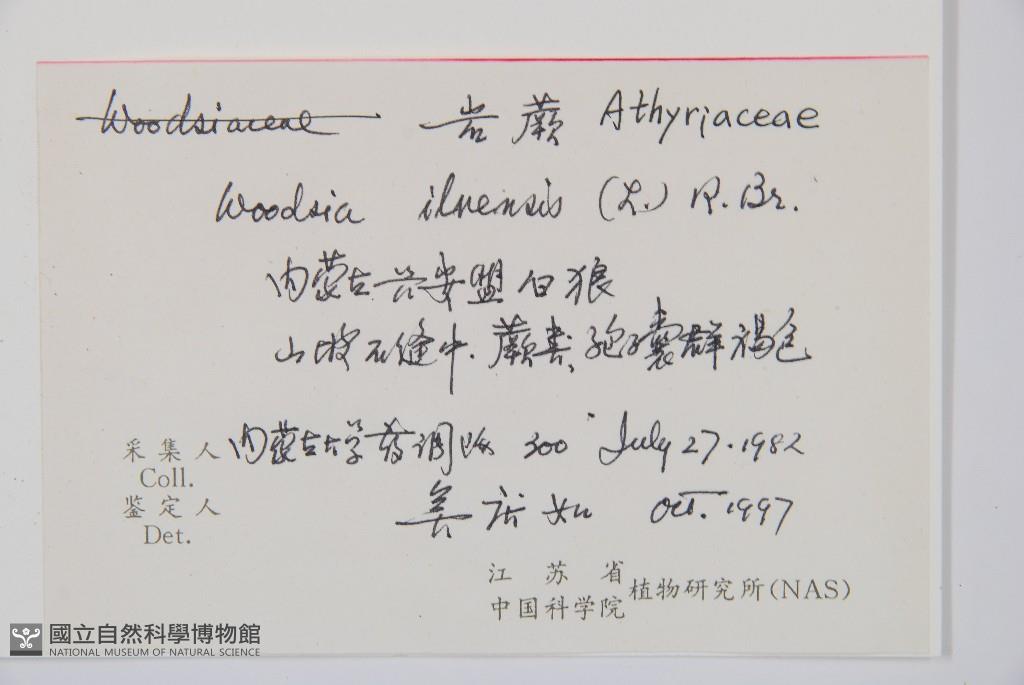 Woodsiaceae 岩蕨 Athyriaceae
Woodsia ilvensis (L.) R. Br.
内蒙古兴安盟白狼
山坡石缝中. 蕨类, 孢子囊群褐色
采集人 内蒙古大学药调队 300 July 27. 1982
Coll.
鉴定人 庆如 Oct. 1997
Det.
江苏省
中国科学院 植物研究所(NAS)
國立自然科學博物館
NATIONAL MUSEUM OF NATURAL SCIENCE